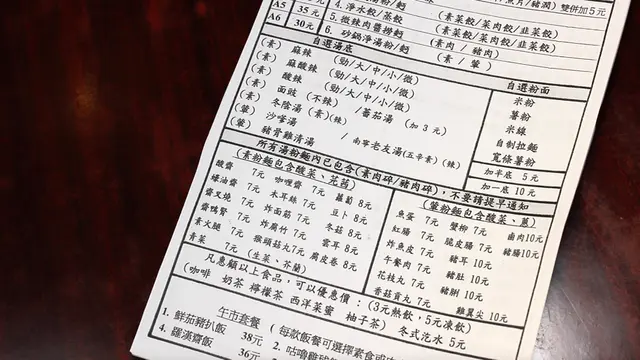 魚片/豬潤) 雙併加5元
A5 35元 4. 淨水餃/蒸餃 (素菜餃/菜肉餃/韭菜餃)
A6 30元 5. 微辣肉醬撈麵 (素菜餃/菜肉餃/韭菜餃)
6. 砂鍋淨湯粉/麵 (素肉 / 豬肉)
(素 / 葷)
自選湯底
(素) 麻辣 (勁/大/中/小/微)
(素) 麻酸辣 (勁/大/中/小/微)
(素) 酸辣 (勁/大/中/小/微)
(素) 面豉 (不辣) /蕃茄湯
(素) 冬陰湯 (素)(辣) (加3元)
(葷) 沙嗲湯
(葷) 豬骨雞清湯 / 南寧老友湯(五辛素)(辣)
自選粉面
米粉
薯粉
米線
自制拉麵
寬條薯粉
加半底 5元
加一底 10元
所有湯粉麵內已包含(素肉碎/豬肉碎),不要請提早通知
(素粉麵包含酸菜、芫茜)
酸齋 7元 咖喱齋 7元 蘿蔔 8元
蠔油齋 7元 木耳絲 7元 豆卜 8元
齋叉燒 7元 炸面筋 7元 冬菇 8元
齋鴨腎 7元 炸腐竹 7元 雲耳 8元
素火腿 7元 猴頭菇丸7元 腐皮卷 8元
青菜 7元 (生菜、芥蘭)
(葷粉麵包含酸菜、蔥)
魚蛋 7元 蟹柳 7元 鹵肉10元
紅腸 7元 脆皮腸 7元 豬腸10元
炸魚皮 7元 豬耳 10元
午餐肉 7元 豬肚 10元
花枝丸 7元 豬脷 10元
香菇貢丸 7元 雞翼尖 10元
凡惠顧以上食品,可以優惠價:(3元熱飲,5元凍飲)
(咖啡 奶茶 檸檬茶 西洋菜蜜 柚子茶) 冬式汔水 5元
午市套餐 (每款飯餐可選擇素食或
1. 鮮茄豬扒飯 38元 2. 咕嚕雞球
4. 羅漢齋飯 36元